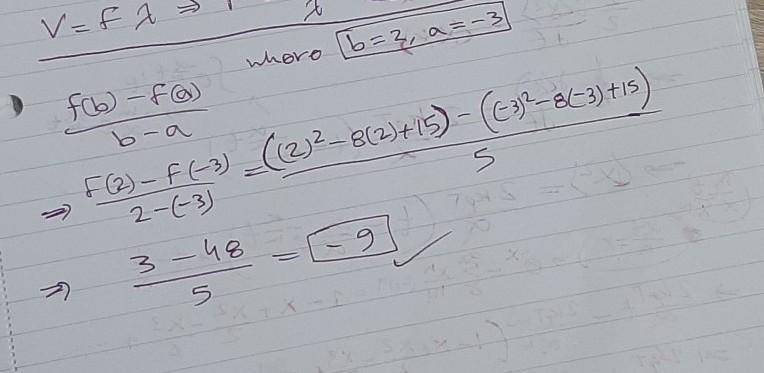 V = f λ ⇒
λ
where b = 2, a = -3
f(b) - f(a)
b - a
⇒ f(2) - f(-3) = ((2)² - 8(2) + 15) - ((-3)² - 8(-3) + 15)
2 - (-3) 5
⇒ 3 - 48 = -9 ✓
5